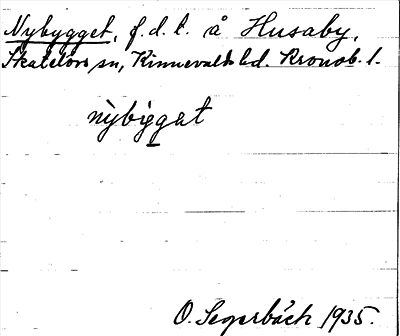 Nybygget, f.d.t. å Husaby,
Skatelövs sn, Kinnevalds hd. Kronob. l.
nỳbyg̲gat
O. Segerbäck 1935.